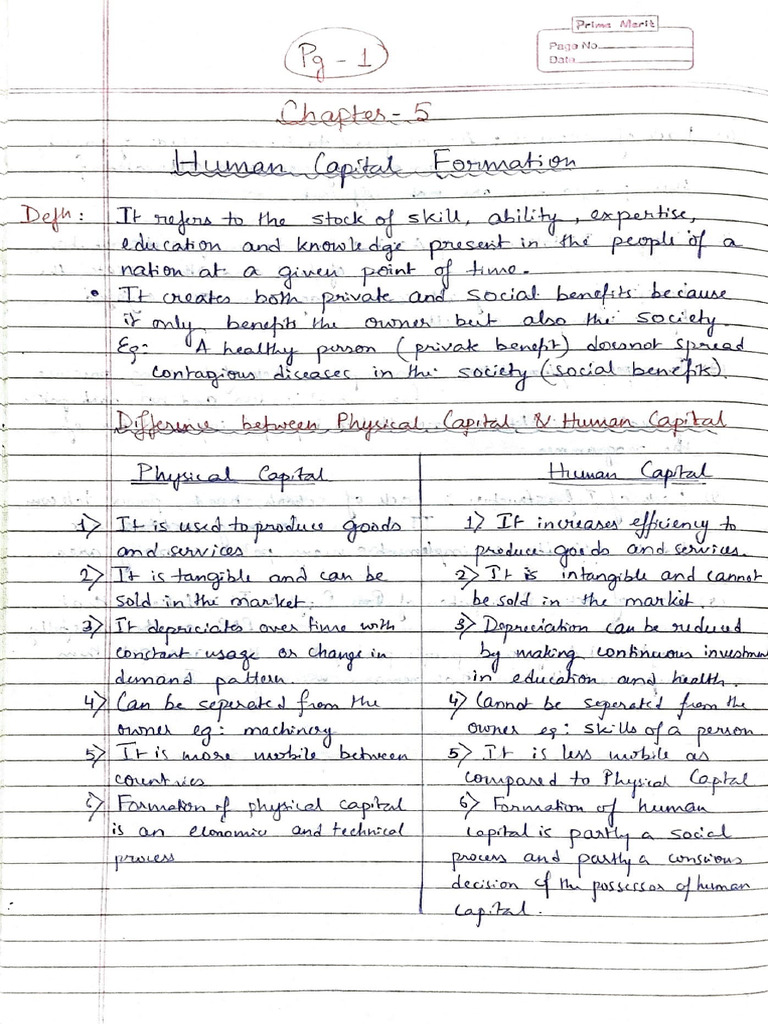 Pg - 1
Prime Merit
Page No.
Date
Chapter - 5
Human Capital Formation
Defn: It refers to the stock of skill, ability, expertise,
education and knowledge present in the people of a
nation at a given point of time.
• It creates both private and social benefits because
it only benefits the owner but also the society.
Eg: A healthy person (private benefit) doesnot spread
contagious diseases in the society (social benefits).
Difference between Physical Capital & Human Capital
Physical Capital
1) It is used to produce goods
and services.
2) It is tangible and can be
sold in the market.
3) It depreciates over time with
constant usage or change in
demand pattern.
4) Can be seperated from the
owner eg: machinery
5) It is more mobile between
countries
6) Formation of physical capital
is an economic and technical
process
Human Capital
1) It increases efficiency to
produce goods and services.
2) It is intangible and cannot
be sold in the market.
3) Depreciation can be reduced
by making continuous investment
in education and health.
4) Cannot be seperated from the
owner eg: skills of a person
5) It is less mobile as
compared to Physical Captal
6) Formation of human
capital is partly a social
process and partly a conscious
decision of the possessor of human
capital.